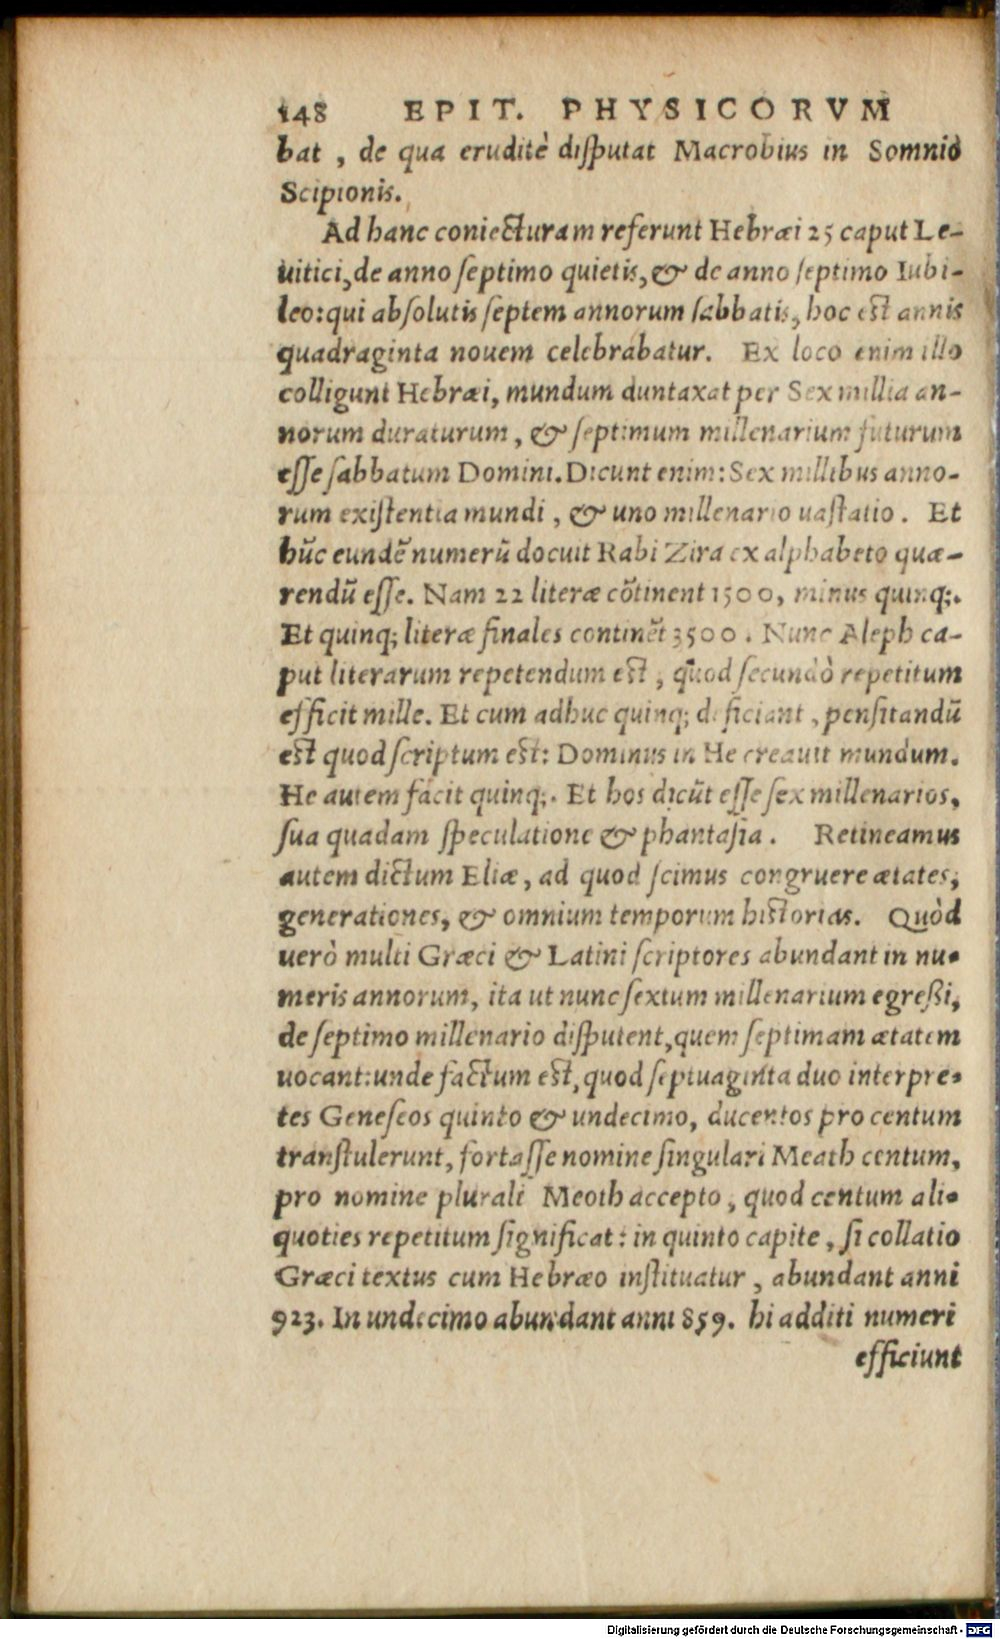 148 EPIT. PHYSICORVM
bat, de qua eruditè diſputat Macrobius in Somnio
Scipionis.
Ad hanc coniecturam referunt Hebræi 25 caput Le-
uitici, de anno ſeptimo quietis, & de anno ſeptimo Iubi-
leo: qui abſolutis ſeptem annorum ſabbatis, hoc est annis
quadraginta nouem celebrabatur. Ex loco enim illo
colligunt Hebræi, mundum duntaxat per Sex millia an-
norum duraturum, & ſeptimum millenarium futurum
eſſe ſabbatum Domini. Dicunt enim: Sex millibus anno-
rum exiſtentia mundi, & uno millenario uaſtatio. Et
hūc eundē numerū docuit Rabi Zira ex alphabeto quæ-
rendū eſſe. Nam 22 literæ cōtinent 1500, minus quinq;.
Et quinq; literæ finales continēt 3500. Nunc Aleph ca-
put literarum repetendum est, quod ſecundò repetitum
efficit mille. Et cum adhuc quinq; deficiant, penſitandū
est quod ſcriptum est: Dominus in He creauit mundum.
He autem facit quinq;. Et hos dicūt eſſe ſex millenarios,
ſua quadam ſpeculatione & phantaſia. Retineamus
autem dictum Eliæ, ad quod ſcimus congruere ætates,
generationes, & omnium temporum historias. Quòd
uerò multi Græci & Latini ſcriptores abundant in nu-
meris annorum, ita ut nunc ſextum millenarium egreßi,
de ſeptimo millenario diſputent, quem ſeptimam ætatem
uocant: unde factum est, quod ſeptuaginta duo interpre-
tes Geneſeos quinto & undecimo, ducentos pro centum
tranſtulerunt, fortaſſe nomine ſingulari Meath centum,
pro nomine plurali Meoth accepto, quod centum ali-
quoties repetitum ſignificat: in quinto capite, ſi collatio
Græci textus cum Hebræo inſtituatur, abundant anni
923. In undecimo abundant anni 859. hi additi numeri
efficiunt
Digitalisierung gefördert durch die Deutsche Forschungsgemeinschaft - DFG